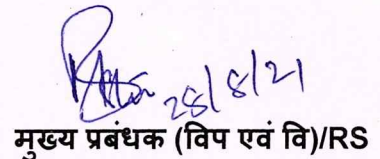 28/8/21
मुख्य प्रबंधक (विप एवं वि)/RS